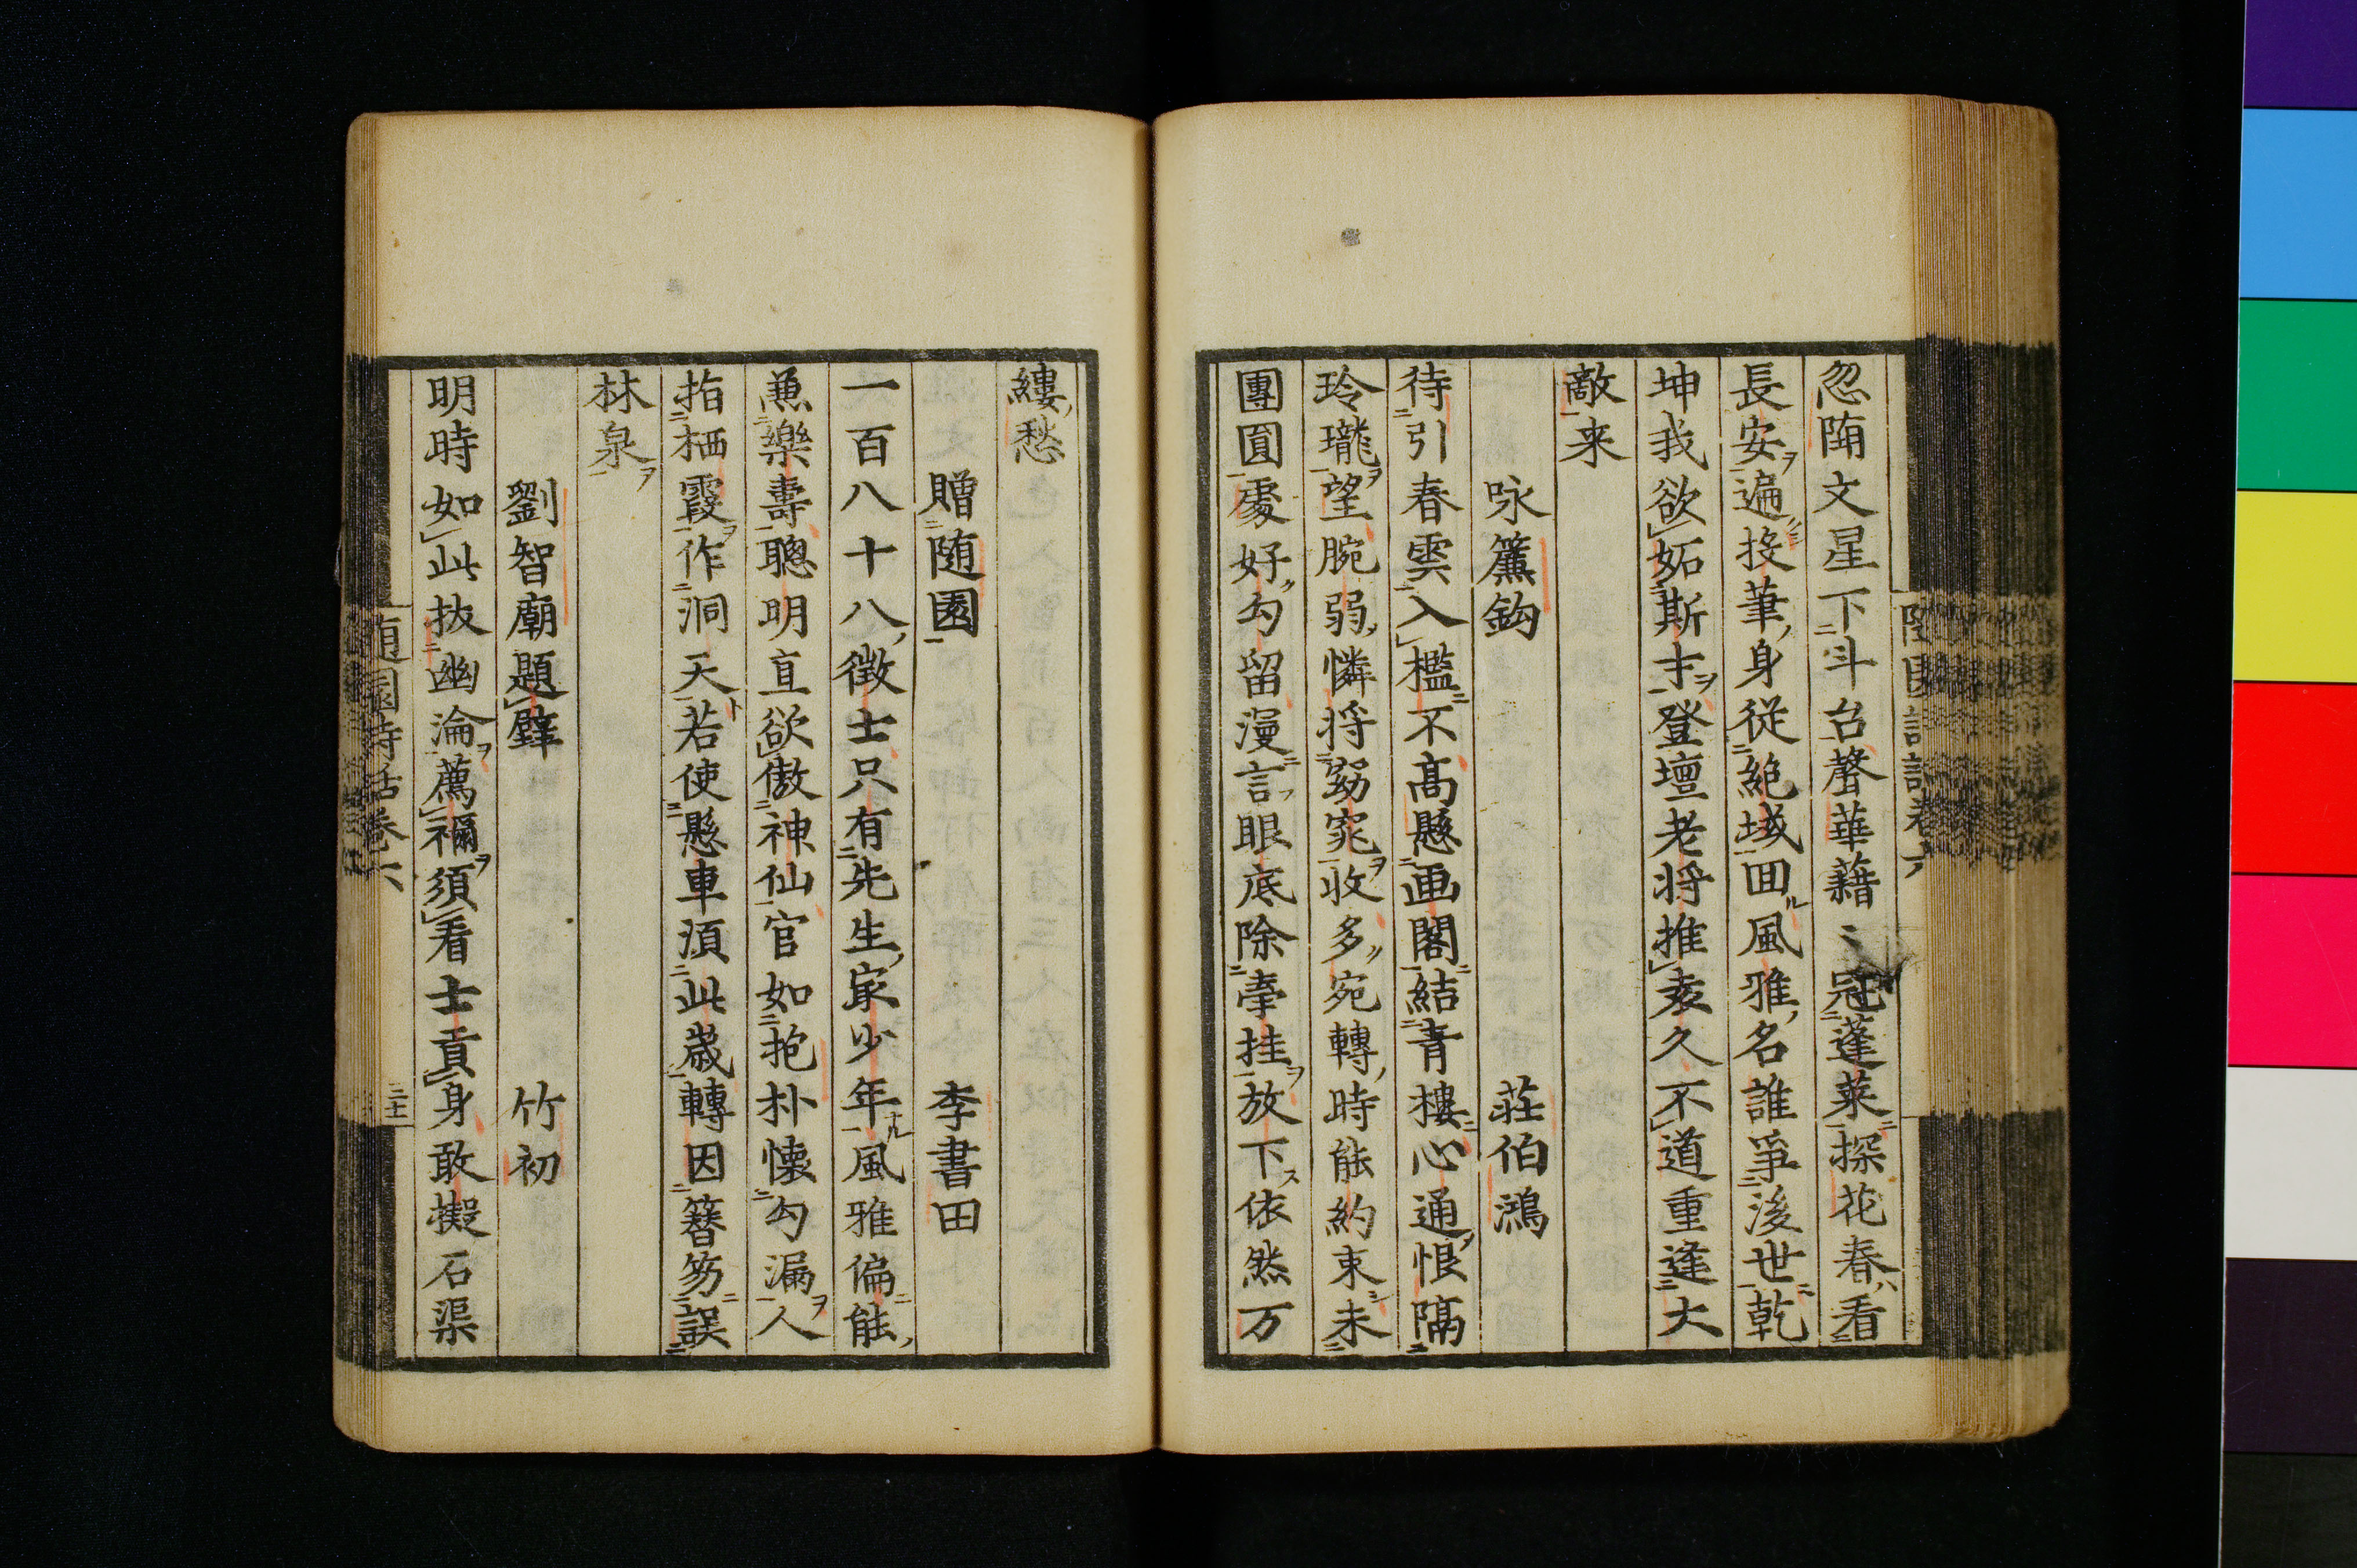 忽隕文星下斗台聲華藉〻冠蓬莱探花春看
長安遍投筆身従絶域囬風雅名誰爭後世乾
坤我欲妬斯才登壇老将推袁久不道重逢大
敵来
咏簾鈎 莊伯鴻
待引春雲入檻不髙懸画閣結青樓心通恨隔
玲瓏望腕弱憐将窈窕收多宛轉時能約束未
團圓處好勾留漫言眼底除牽挂放下依然万
縷愁
贈随園 李書田
一百八十八徴士只有先生家少年風雅偏能
兼樂壽聰明直欲傲神仙官如抱朴懐勾漏人
指栖霞作洞天若使懸車須此歳轉因簪笏誤
林泉
劉智廟題壁 竹初
明時如此抜幽淪薦禰須看士貢身敢擬石渠
随園詩話巻六